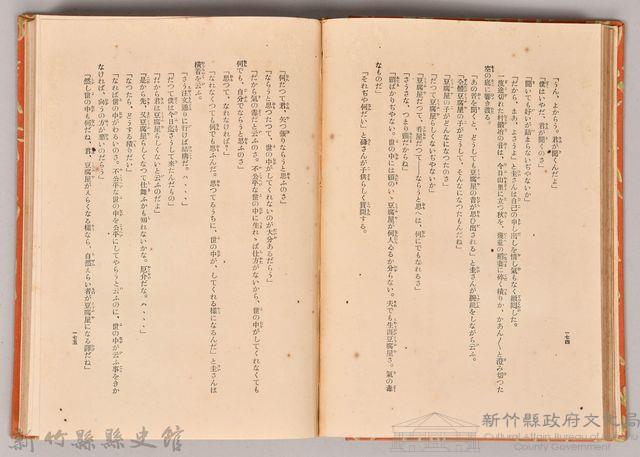 「うん、よからう。君が聞くんだよ」
「僕はいやだ、君が聞くのさ」
「聞いても好いが詰まらないぢやないか」
「だから、まあ、よさうよ」と圭さんは自己の申し出しを惜し氣もなく撤回した。
一度途切れた村鍛冶の音は、今日山里に立つ秋を、幾重の稻妻に碎く積りか、かあん〱と澄み切つた
空の底に響き渡る。
「あの音を聞くと、どうしても豆腐屋の音が思ひ出される」と圭さんが腕組をしながら云ふ。
「全體豆腐屋の子がどうして、そんなになつたもんだね」
「豆腐屋の子がどんなになつたのさ」
「だつて豆腐屋らしくないぢやないか」
「豆腐屋だつて、肴屋だつて――ならうと思へば、何にでもなれるさ」
「さうさな、つまり頭だからね」
「頭ばかりぢやない。世の中には頭のいゝ豆腐屋が何人ゐるか分らない。夫でも生涯豆腐屋さ。氣の毒
なものだ」
「それぢや何だい」と碌さんが子供らしく質問する。
一七四
「何だつて君、矢つ張りならうと思ふのさ」
「ならうと思つたつて、世の中がしてくれないのが大分あるだらう」
「だから氣の毒だと云ふのさ。不公平な世の中に生れゝば仕方がないから、世の中がしてくれなくても
何でも、自分でならうと思ふのさ」
「思つて、なれなければ？」
「なれなくつても何でも思ふんだ。思つてるうちに、世の中が、してくれる樣になるんだ」と圭さんは
橫着を云ふ。
「さう注文通りに行けば結構だ。ハヽヽヽ」
「だつて僕は今日迄さうして來たんだもの」
「だから君は豆腐屋らしくないと云ふのだよ」
「是から先、又豆腐屋らしくなつて仕舞ふかも知れないかな。厄介だな。ハヽヽヽ」
「なつたら、どうする積りだい」
「なれば世の中がわるいのさ。不公平な世の中を公平にしてやらうと云ふのに、世の中が云ふ事をきか
なければ、向うの方が惡いのだらう」
「然し世の中も何だね、君、豆腐屋がえらくなる樣なら、自然えらい者が豆腐屋になる譯だね」
一七五
新竹縣縣史館
新竹縣政府文化局
Cultural Affair Bureau of Hsinchu
County Government